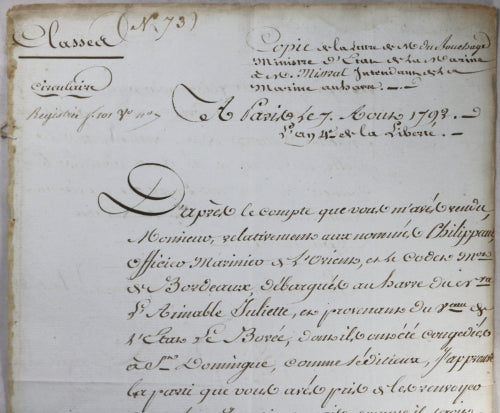 Classes (N° 73)
Copie de la Lettre de M. du Bouchage
Ministre d'Etat de la Marine
à M. Mistral Intendant de la
Marine au havre. —
Circulaire
Registrée f° 101 V° n° 7
A Paris le 7. Aout 1792. —
L'an 4e. de la Liberté. —
D'après le compte que vous m'avés rendu
Monsieur, relativement aux nommés Philippand
officier Marinier de L'Orient, et le Codet M
de Bordeaux, débarqués au havre du
L'Aimable Juliette, et provenant du Vau de
L'Etat Le Borée, dont ils ont été congediés
à St. Domingue, comme séditieux, J'approuve
le parti que vous avés pris de les renvoyer